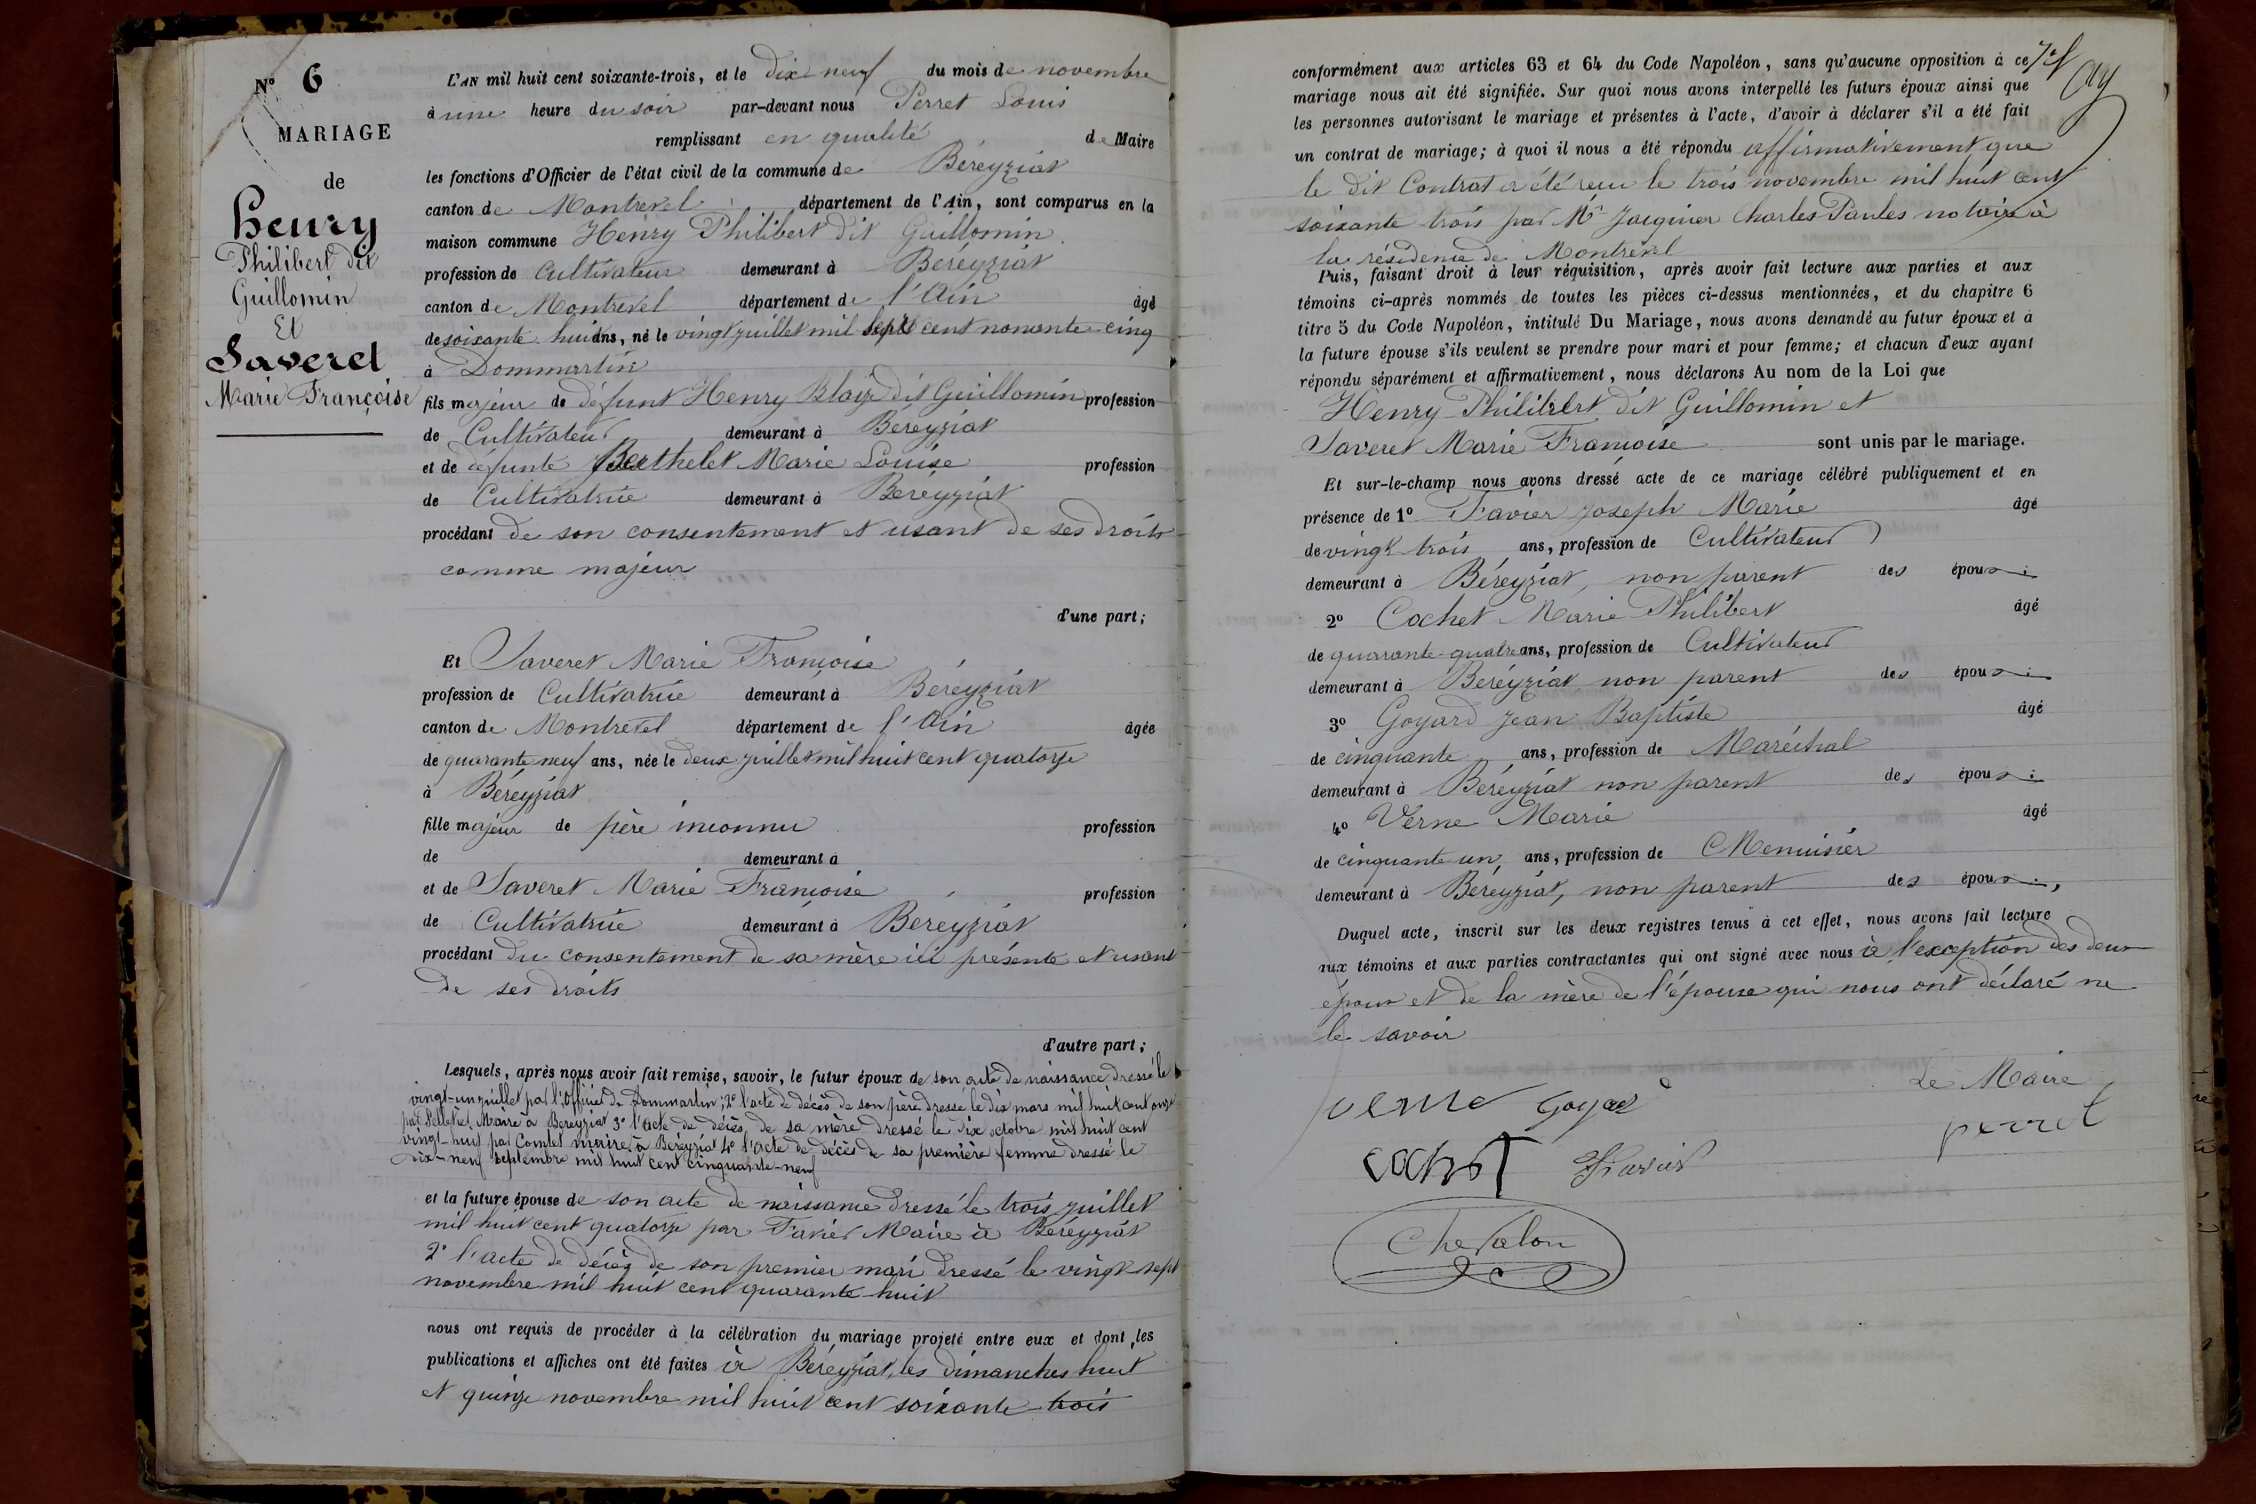 N° 6
MARIAGE
de
Henry
Philibert dit
Guillomin
Et
Saveret
Marie Françoise
L'AN mil huit cent soixante-trois, et le dix neuf du mois de novembre
à une heure du soir par-devant nous Perret Louis
remplissant en qualité de Maire
les fonctions d'Officier de l'état civil de la commune de Béreyziat
canton de Montrevel département de l'Ain, sont comparus en la
maison commune Henry Philibert dit Guillomin
profession de Cultivateur demeurant à Béreyziat
canton de Montrevel département de l'Ain âgé
de soixante huit ans, né le vingt juillet mil sept cent nonante-cinq
à Dommartin
fils majeur de défunt Henry Blaize dit Guillomin profession
de Cultivateur demeurant à Béreyziat
et de défunte Berthelet Marie Louise profession
de Cultivatrice demeurant à Béreyziat
procédant de son consentement et usant de ses droits
comme majeur
d'une part;
Et Saveret Marie Françoise
profession de Cultivatrice demeurant à Béreyziat
canton de Montrevel département de l'Ain âgée
de quarante neuf ans, née le deux juillet mil huit cent quatorze
à Béreyziat
fille majeur de père inconnu profession
de demeurant à
et de Saveret Marie Françoise profession
de Cultivatrice demeurant à Béreyziat
procédant du consentement de sa mère ici présente et usant
de ses droits
d'autre part;
Lesquels, après nous avoir fait remise, savoir, le futur époux de son acte de naissance dressé le
vingt-un juillet par l'Officier de Dommartin; 2° l'acte de décès de son père dressé le dix mars mil huit cent onze
par Maire à Béreyziat 3° l'acte de décès de sa mère dressé le dix octobre mil huit cent
vingt-huit par Comtet maire à Béreyziat 4° l'acte de décès de sa première femme dressé le
dix-neuf septembre mil huit cent cinquante-neuf
et la future épouse de son acte de naissance dressé le trois juillet
mil huit cent quatorze par Favier Maire à Béreyziat
2° l'acte de décès de son premier mari dressé le vingt-sept
novembre mil huit cent quarante-huit
nous ont requis de procéder à la célébration du mariage projeté entre eux et dont les
publications et affiches ont été faites à Béreyziat, les dimanches huit
et quinze novembre mil huit cent soixante-trois
conformément aux articles 63 et 64 du Code Napoléon, sans qu'aucune opposition à ce
mariage nous ait été signifiée. Sur quoi nous avons interpellé les futurs époux ainsi que
les personnes autorisant le mariage et présentes à l'acte, d'avoir à déclarer s'il a été fait
un contrat de mariage; à quoi il nous a été répondu affirmativement que
le dit Contrat a été reçu le trois novembre mil huit cent
soixante trois par Mr Jacquier Charles Paules notaire à
la résidence de Montrevel
Puis, faisant droit à leur réquisition, après avoir fait lecture aux parties et aux
témoins ci-après nommés de toutes les pièces ci-dessus mentionnées, et du chapitre 6
titre 5 du Code Napoléon, intitulé Du Mariage, nous avons demandé au futur époux et à
la future épouse s'ils veulent se prendre pour mari et pour femme; et chacun d'eux ayant
répondu séparément et affirmativement, nous déclarons Au nom de la Loi que
Henry Philibert dit Guillomin et
Saveret Marie Françoise sont unis par le mariage.
Et sur-le-champ nous avons dressé acte de ce mariage célébré publiquement et en
présence de 1° Favier Joseph Marie âgé
de vingt trois ans, profession de Cultivateur
demeurant à Béreyziat, non parent des époux;
2° Cochet Marie Philibert âgé
de quarante-quatre ans, profession de Cultivateur
demeurant à Béreyziat non parent des époux;
3° Goyard Jean Baptiste âgé
de cinquante ans, profession de Maréchal
demeurant à Béreyziat non parent des époux;
4° Verne Marie âgé
de cinquante-un, ans, profession de Menuisier
demeurant à Béreyziat, non parent des époux,
Duquel acte, inscrit sur les deux registres tenus à cet effet, nous avons fait lecture
aux témoins et aux parties contractantes qui ont signé avec nous à l'exception des deux
époux et de la mère de l'épouse qui nous ont déclaré ne
le savoir
Le Maire
verne Goyard
perret
cochet Favier
Chevalon